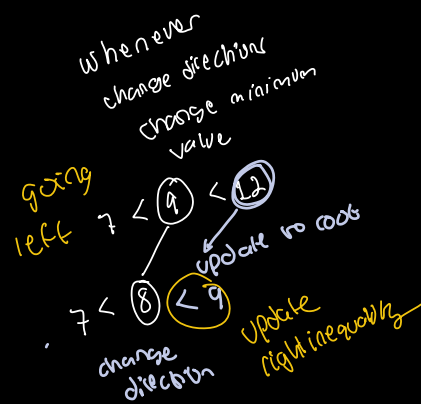 whenever
change directions
change minimum
value
going
left
7 < 9 < 12
update to root
7 < 8 < 9
change
direction
update
right inequality